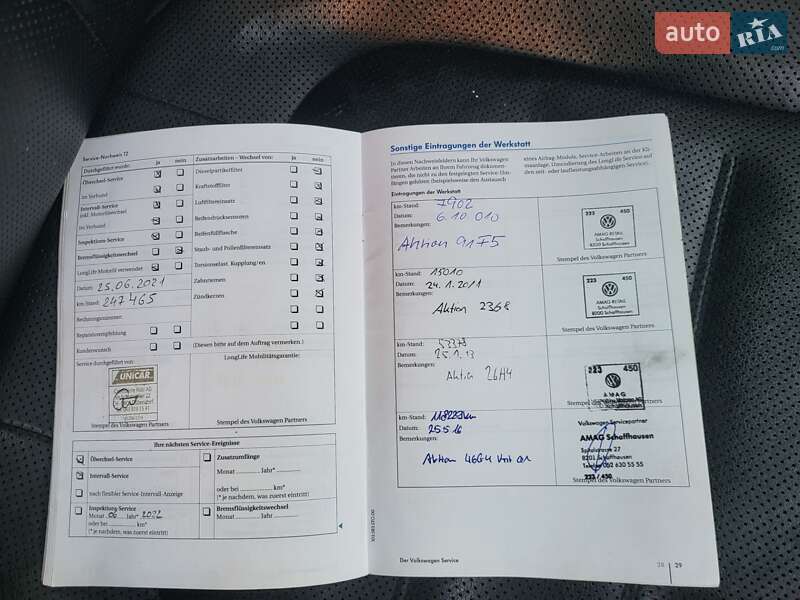 auto RIA.com
Service-Nachweis 12
Durchgeführt wurde: ja nein
Zusatzarbeiten – Wechsel von: ja nein
Ölwechsel-Service
im Verbund
Intervall-Service
inkl. Motorölwechsel
im Verbund
Inspektions-Service
Bremsflüssigkeitswechsel
LongLife Motoröl verwendet
Datum: 25.06.2021
km-Stand: 247465
Rechnungsnummer:
Reparaturempfehlung
Kundenwunsch
Service durchgeführt von:
UNICAR
Stempel des Volkswagen Partners
Dieselpartikelfilter
Kraftstofffilter
Luftfiltereinsatz
Reifendrucksensoren
Reifenfüllflasche
Staub- und Pollenfiltereinsatz
Torsionselast. Kupplung/en
Zahnriemen
Zündkerzen
(Diesen bitte auf dem Auftrag vermerken.)
LongLife Mobilitätsgarantie:
Stempel des Volkswagen Partners
Ihre nächsten Service-Ereignisse
Ölwechsel-Service
Intervall-Service
nach flexibler Service-Intervall-Anzeige
Inspektions-Service
Monat 06 Jahr* 2022
oder bei km*
(* je nachdem, was zuerst eintritt)
Zusatzumfänge
Monat Jahr*
oder bei km*
(* je nachdem, was zuerst eintritt)
Bremsflüssigkeitswechsel
Monat Jahr
Sonstige Eintragungen der Werkstatt
In diesen Nachweisfeldern kann Ihr Volkswagen
Partner Arbeiten an Ihrem Fahrzeug dokumen-
tieren, die nicht zu den festgelegten Service-Um-
fängen gehören (beispielsweise den Austausch
eines Airbag-Moduls, Service-Arbeiten an der Kli-
maanlage, Umcodierung des LongLife Service auf
den zeit- oder laufleistungsabhängigen Service).
Eintragungen der Werkstatt
km-Stand: 7902
Datum: 6.10 010
Bemerkungen:
Aktion 91F5
223 450
AMAG RETAIL
Schaffhausen
8200 Schaffhausen
Stempel des Volkswagen Partners
km-Stand: 15010
Datum: 24.1.2011
Bemerkungen:
Aktion 2368
223 450
AMAG RETAIL
Schaffhausen
8200 Schaffhausen
Stempel des Volkswagen Partners
km-Stand:
Datum: 25.1.13
Bemerkungen:
Aktion 26H4
223 450
AMAG
Schaffhausen
Stempel des Volkswagen Partners
km-Stand:
Datum: 25.5.16
Bemerkungen:
Aktion 46G4
Volkswagen Servicepartner
AMAG Schaffhausen
Spitalstrasse 27
8201 Schaffhausen
Telefon 052 630 55 55
223 / 450
Stempel des Volkswagen Partners
Der Volkswagen Service
28 29